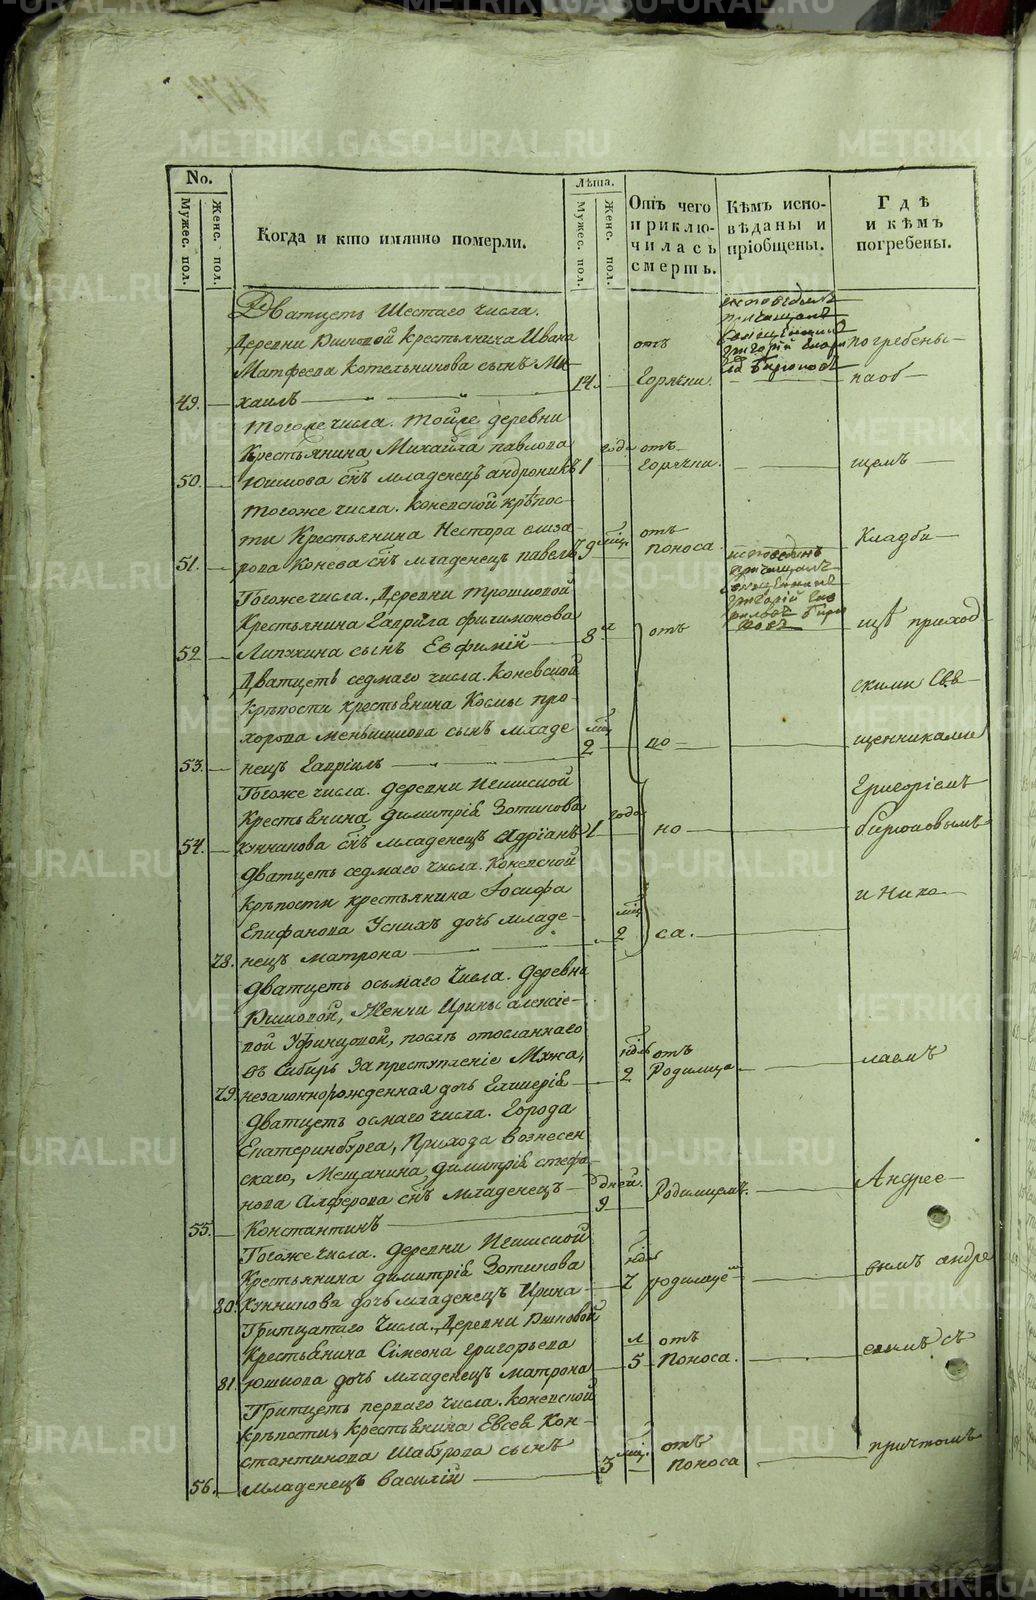 No.
Мужес. пол.
Женс. пол.
Когда и кто имянно померли.
Лѣта.
Мужес. пол.
Женс. пол.
Отъ чего приключилась смерть.
Кѣмъ исповѣданы и пріобщены.
Гдѣ и кѣмъ погребены.
Дватцеть Шестаго числа.
Деревни Юшковой Крестьянина Ивана
Матфеева Котельникова сынъ Ми-
49. хаилъ 14. отъ Горячки.
исповеданъ
причащенъ
священникъ
Григорій
Бирюковъ
погребены
на об-
Тогоже числа. Тойже деревни
Крестьянина Михайла павлова
50. Юшкова сѣъ младенецъ андроникъ 1 года отъ Горячки. щемъ
Тогоже числа. Коневской крѣпос-
ти Крестьянина Нестора елиза-
51. рова Конева сѣъ младенецъ павелъ 9 мѣц. отъ поноса. Кладби-
Тогоже числа. Деревни Трошковой
Крестьянина Гаврила филимонова
52. Липихина сынъ Евфимій 8 отъ
исповеданъ
причащенъ
священникъ
Григорій
щѣ приход
Дватцеть седмаго числа. Коневской
Крѣпости крестьянина Космы про-
хорова меньшикова сынъ младе
53. нецъ Гавріилъ 2 мѣц по-
скими Свя-
щенниками
Тогоже числа. деревни
Крестьянина Димитрія Зотикова
54. сѣъ младенецъ Адріанъ 1 года но
Григоріемъ
Бирюковымъ
дватцеть седмаго числа. Коневской
Крѣпости крестьянина Іосифа
Епифанова Успихъ дочь младе-
78. нецъ матрона 2 мѣц са.
и Нико
дватцеть осьмаго числа. деревни
Юшковой, Женки Ирины алексіе-
вой Уфинцовой, послѣ отосланнаго
въ Сибирь За преступленіе Мужа,
79. незаконнорожденная дочь Гликерія 2 нѣдль отъ Родимца
лаемъ
дватцеть осмаго числа. Города
Екатеринбурга, Прихода вознесен
скаго, Мещанина, димитрія стефа-
нова Алферова сѣъ младенецъ
55. Константинъ 9 дней. Родимцемъ.
Андрее-
Тогоже числа. деревни
Крестьянина димитрія Зотикова
80. дочь младенецъ Ирина 7 родимце
вымъ андре
Тритцатаго числа. Деревни Юшковой
Крестьянина Сімеона григорьева
81. юшкова дочь младенецъ матрона 5 отъ поноса.
евымъ съ
Тритцеть перваго числа. Коневской
крѣпости, крестьянина Евсея Кон-
стантинова Шабурова сынъ
56. младенецъ василій 3 мѣц. отъ поноса
причтомъ
METRIKI.GASO-URAL.RU